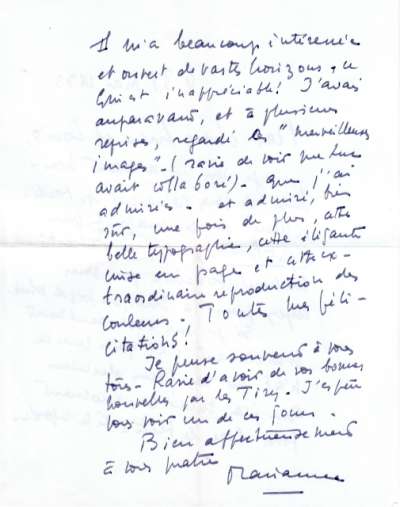 Il m'a beaucoup intéressée
et ouvert de vastes horizons, ce
qui est inappréciable! J'avais
auparavant, et à plusieurs
reprises, regardé les "merveilleuses
images" - (ravie de voir que
avait collaboré) - que j'ai
admirées - et admiré, bien
sûr, une fois de plus, cette
belle typographie, cette élégante
mise en page et cette ex-
traordinaire reproduction des
couleurs. Toutes mes féli-
citations!
Je pense souvent à vous
tous - Ravie d'avoir de vos bonnes
nouvelles par les J'espère
vous voir un de ces jours.
Bien affectueusement
à vous quatre
Marianne